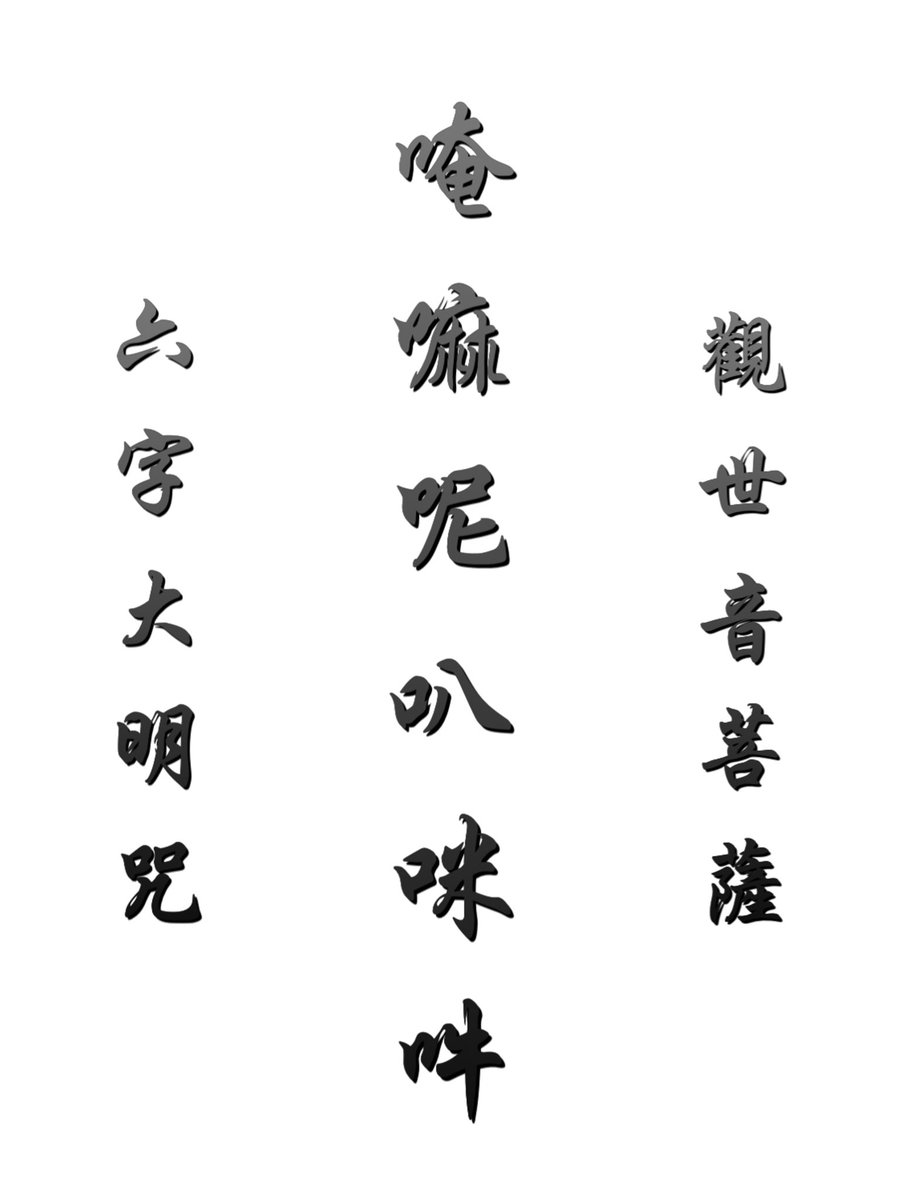 觀世音菩薩
唵嘛呢叭咪吽
六字大明咒